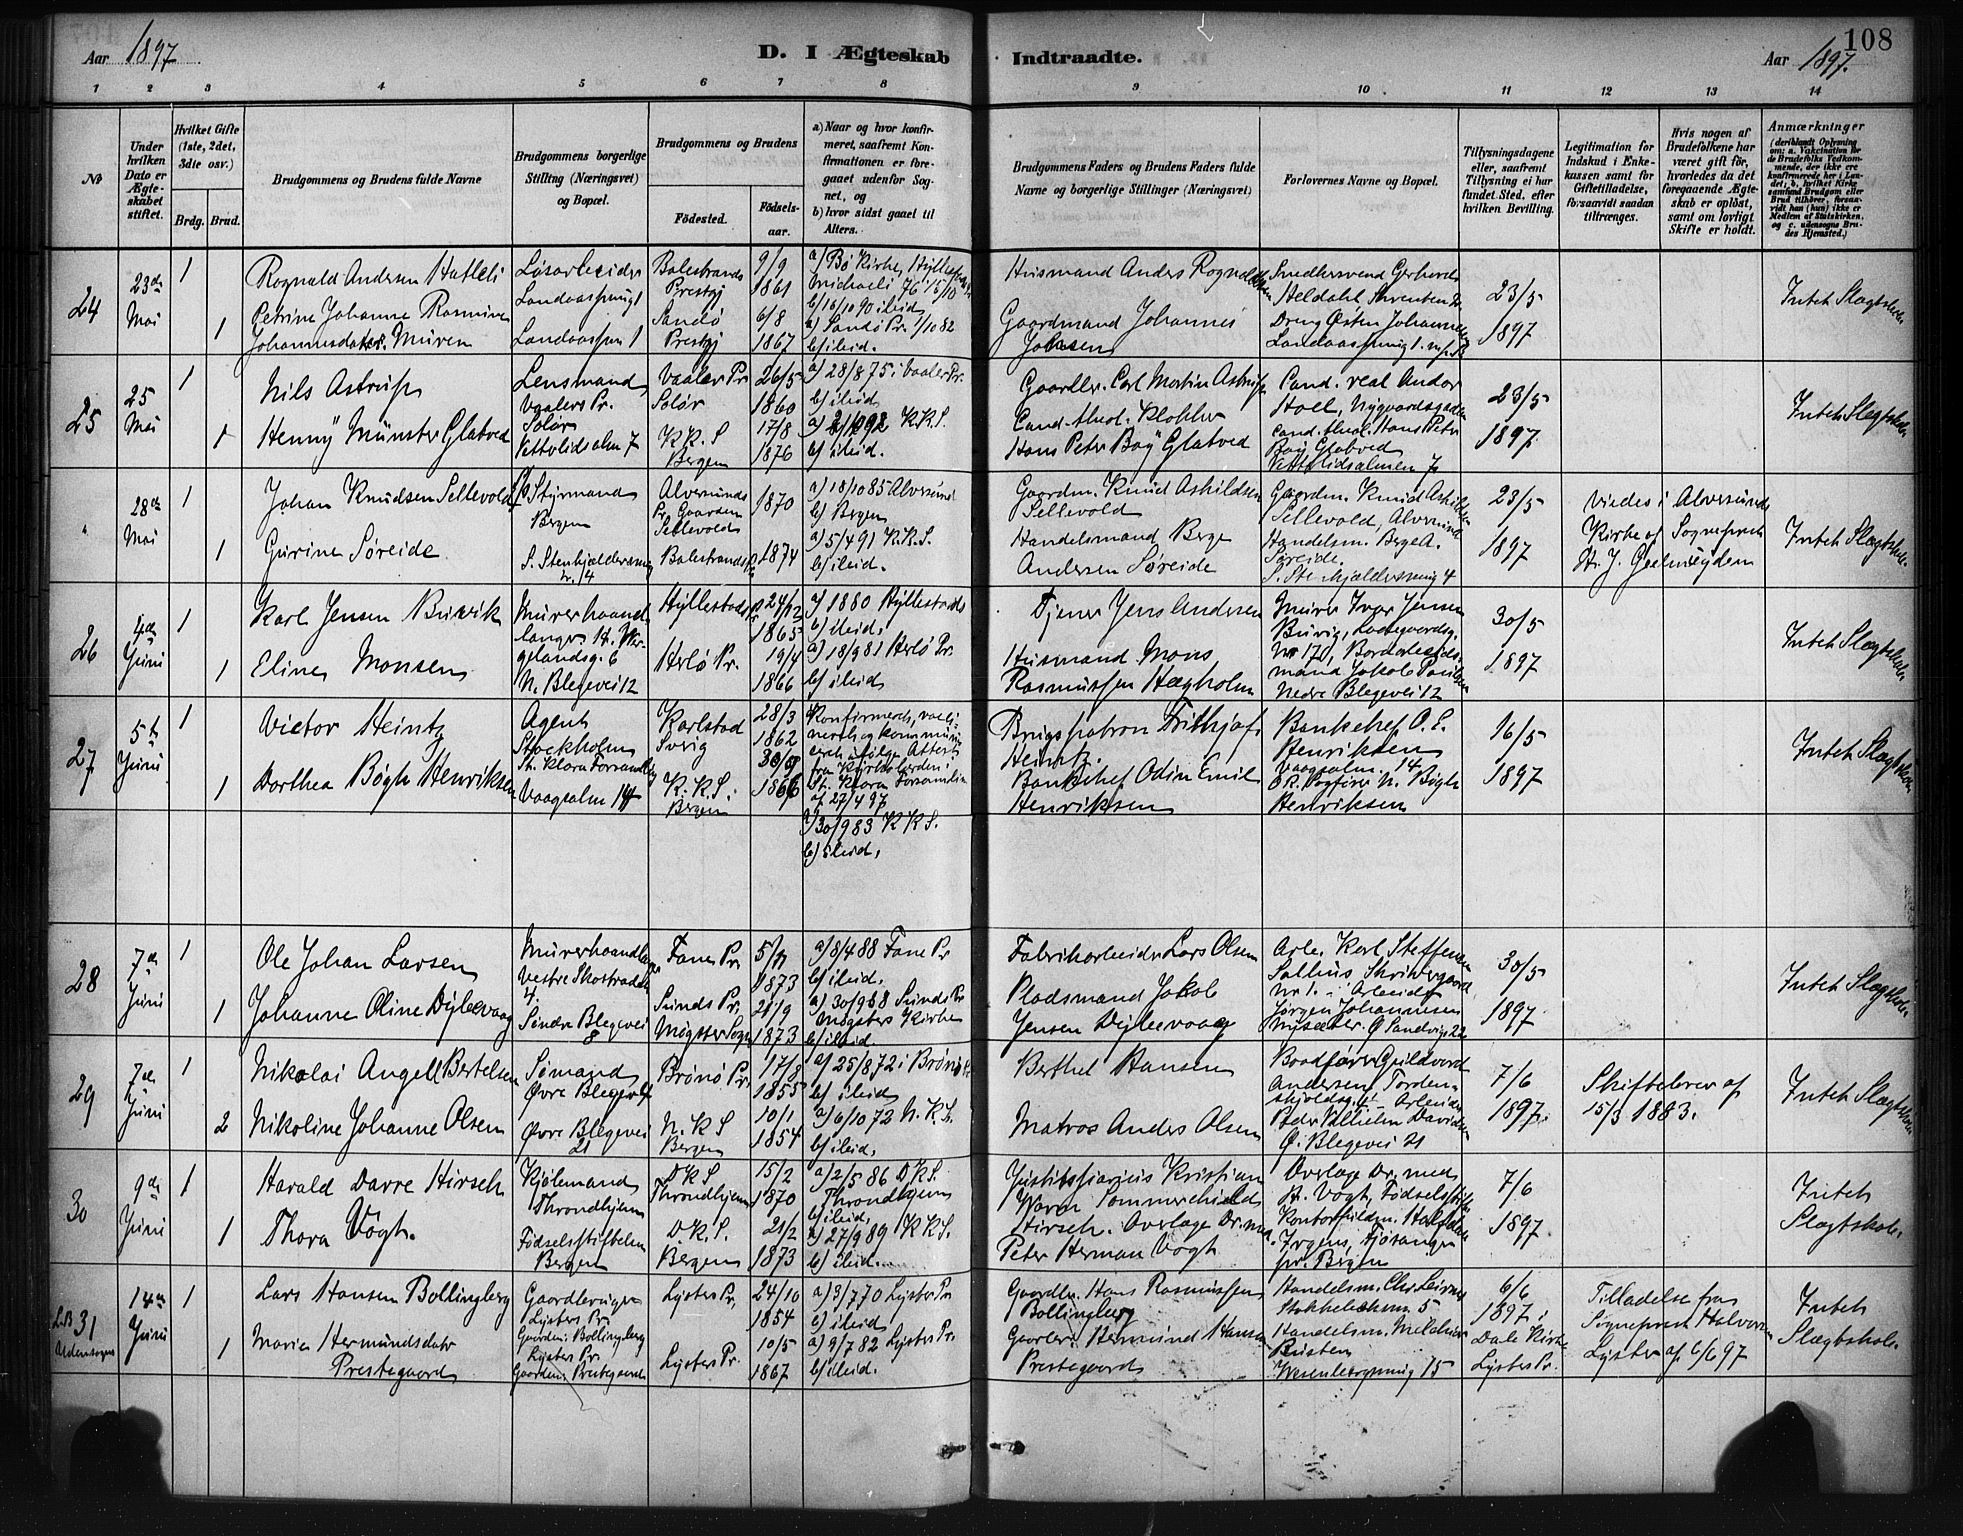 108
Aar 1897
D. I Ægteskab
Indtraadte.
Aar 1897.
1 2 3 4 5 6 7 8
9 10 11 12 13 14
No
Under
hvilken
Dato er
Ægte-
skabet
stiftet.
Hvilket Gifte
(1ste, 2det,
3die osv.)
Brdg. Brud.
Brudgommens og Brudens fulde Navne
Brudgommens borgerlige
Stilling (Næringsvei)
og Bopæl.
Brudgommens og Brudens
Fødested.
Fødsels-
aar.
a) Naar og hvor konfir-
meret, saafremt Kon-
firmationen er fore-
gaaet udenfor Sog-
net, og
b) hvor sidst gaaet til
Alters.
Brudgommens Faders og Brudens Faders fulde
Navne og borgerlige Stillinger (Næringsvei)
Forlovernes Navne og Bopæl.
Tillysningsdagene
eller, saafremt
Tillysning ei har
fundet Sted, efter
hvilken Bevilling.
Legitimation for
Indskud i Enke-
kassen samt for
Giftetilladelse,
forsaavidt saadan
tiltrænges.
Hvis nogen af
Brudefolkene har
været gift før,
hvorledes da det
foregaaende Ægte-
skab er opløst,
samt om lovligt
Skifte er holdt.
Anmærkninger
(deriblandt Oplysning
om: a. Vakcination for
de Brudefolks Vedkom-
mende, der ikke ere
konfirmerede her i Lan-
det; b. hvilket Kirke
samfund Brudgom eller
Brud tilhører, forsaa-
vidt han (hun) ikke er
Medlem af Statskirken,
og c. udensogns Bru-
des Hjemsted.)
24
23de
Mai
1
1
Rognald Andersen Hatleli
Petrine Johanne Rasmine
Johannesdatter Muren
Løsarbeider
Landaassmug 1
Landaassm 1
Balestrands
Prestgj
Sandø
Prestgj
9/9
1861
6/8
1867
a) Bø Kirke, Hyllestad
Michaeli 76 15/10
b) 16/10 90 ibid
a) Sandø Pr. 1/10 82
b) ibid.
Husmand Anders Rognaldsen
Gaardmand Johannes
Johnsen
Smedkersvend Gerhard
Heldahl,
Dreng Østen Johannesen
Landaassmug 1
23/5
1897
Intet Slægtskab
25
25
Mai
1
1
Nils Astrup
Henny Münster Glatved
Lensmand
Vaalers Pr.
Solør
Vetrlidsalm 7
Vaaler Pr
Solør
K. K. S
Bergen
26/5
1860
17/8
1876
a) 28/8 75 i Vaaler Pr.
b) ibid
a) 2/10 92 K. K. S.
b) ibid.
Gaardbr. Carl Martin Astrup
Cand. theol. Klokker
Hans Peter Boÿ Glatved
Cand. real Andor
Hoel, Nygaardsgaden
Cand. theol. Hans Peter
Boÿ Glatved
Vetrlidsalmen 7
23/5
1897
Intet Slægtskab
"
28de
Mai
1
1
Johan Knudsen Sellevold
Gurine Søreide
Styrmand
Bergen
S. Stenkjeldersmug
4
Alversunds
Pr. Gaarden
Sellevold
Balestrands Pr
1870
1874
a) 18/10 85 Alversund
b) Bergen
a) 5/4 91 K. K. S.
b) ibid.
Gaardm. Knud Askildsen
Sellevold
Handelsmand Berge
Andersen Søreide
Gaardm. Knud Askildsen
Sellevold, Alversund
Handelsm. Berge A.
Søreide.
S. Stenkjeldersmug 4
23/5
1897
Viedes i Alversunds
Kirke af Sogneprest
H. J. Geelmuyden
Intet Slægtskab
26
4de
Juni
1
1
Karl Jensen Buvik
Eline Monsen
Murerhaand
langer H. Wer-
gelandsg. 6
N. Blegevei 12
Hyllestads Pr
Herlø Pr.
24/12
1865
19/4
1866
a) 1880 Hyllestads
b) ibid.
a) 18/9 81 Herlø Pr.
b) ibid
Tjener Jens Andersen
Husmand Mons
Rasmussen Hægholm
Murer Ivar Jensen
Buvig, Ladegaardsg.
No 170, Bordarbeids
mand Jakob Paulsen
Nedre Blegevei 12
30/5
1897
Intet Slægtskab
27
5te
Juni
1
1
Victor Heintz
Dorthea Bøgh Henriksen
Agent
Stockholm
St. Klara Forsamling
Vaagsalm 14
Karlstad
Sverig
K. K. S.
Bergen
28/3
1862
1866
Konfirmeret, vacci-
neret og kommuni
ceret ifølge Attest
fra Kirkeherden i
St. Klara Forsamling
af 27/4 97
a) 30/9 83 K K S.
b) ibid.
Brugspatron Frithjof
Heintz.
Bankchef Odin Emil
Henriksen
Bankchef O. E.
Henriksen
Vaagsalm. 14
N. Bøgh
Henriksen
16/5
1897
Intet Slægtskab
28
7de
Juni
1
1
Ole Johan Larsen
Johanne Oline Dyleevaag
Murerhaandlanger
Vestre Skostræde
4.
Søndre Blegevei
8
Fane Pr.
Sunds Pr.
Møgster Sogn
1873
21/9
1873
a) 8/4 88 Fane Pr
b) ibid.
a) 30/9 88 Sunds Pr
Møgsters Kirke
b) ibid
Fabrikarbeider Lars Olsen
Pladsmand Jakob
Jensen Dyleevaag
Arb. Karl Steffensen
No 1. Arbeider
Jørgen Johannesen
Myseter. Ø Sandvig 22
30/5
1897
Intet Slægtskab
29
7de
Juni
1
2
Nikolai Angell Bertelsen
Nikoline Johanne Olsen
Sømand
Øvre Blegevei
Øvre Blegevei
21
Brønø Pr.
N. K S
Bergen
17/8
1855
10/1
1854
a) 25/8 72 i Brønø
b) ibid
a) 6/10 72 N. K. S.
b) ibid.
Berthel Hansen
Matros Anders Olsen
Baadfører Guldvard
Andersen, Torden-
skjoldsg. Arbeider
Peder Vilhelm Davidsen
Ø. Blegevei 21
7/6
1897.
Skiftebrev af
15/3 1883.
Intet Slægtskab
30
9de
Juni
1
1
Harald Darre Hirsch
Thora Vogt.
Kjøbmand
Throndhjem
Fødselsstiftelsen
Bergen
D. K S
Throndhjem
D. K. S.
Bergen
15/2
1870
21/2
1873
a) 2/5 86 D K S.
Throndhjem
b) ibid.
a) 27/9 89 K K S.
b) ibid.
Justitssiarius Kristian
Worm Tommerchield
Hirsch. Overlæge Dr. med.
Peter Herman Vogt
Overlæge Dr. med
H. Vogt, Fødselsstiftelsen
Kontorfuldm. Halfdan
Irgens, Fjøsanger
pr. Bergen
7/6
1897
Intet
Slægtskab.
L.B 31
Udensogns
14de
Juni
1
1
Lars Hansen Bollingberg
Marie Hermundsdatr
Prestegaard
Gaardbruger
Lysters Pr.
Gaarden: Bollingberg
Lysters Pr.
Gaarden: Prestegaard
Lysters Pr.
Lysters Pr.
24/10
1854
10/5
1867
a) 3/7 70 Lysters Pr
b) ibid
a) 9/7 82 Lysters Pr.
b) ibid.
Gaardbr. Hans Rasmussen
Bollingberg
Gaardbr. Hermund Hansen
Prestegaard
Handelsm. Chr. Leirvaag
5
Handelsm. Melchior
Risten
Wesenbergsmug 15
6/6
1897 i
Dale Kirke
Lysters Pr.
Tilladelse fra
Sogneprest Halvorsen
Lyster af 6/6 97
Intet
Slægtskab.